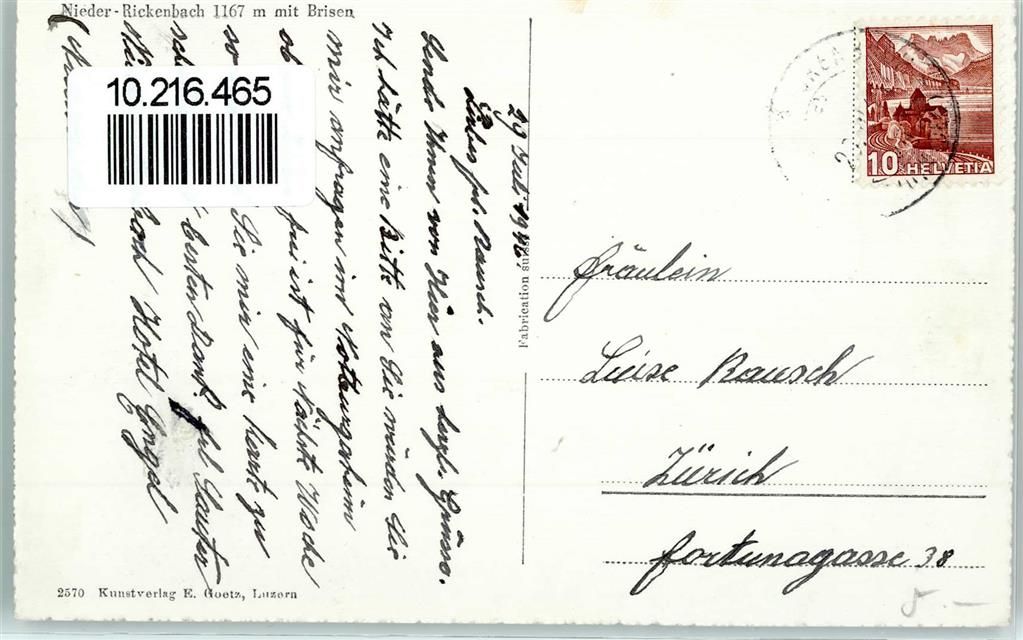 Nieder-Rickenbach 1167 m mit Brisen
10.216.465
10 HELVETIA
29 Juli 1946.
Liebes frl. Rausch.
Sende Ihnen von Hier aus herzl. Grüsse.
Ich hätte eine Bitte an Sie würden Sie
mir anfragen im Notburgaheim
ob frei ist für Nächste Woche
so Sie mir eine Kart zu
besten Dank. frl
Hotel Engel
Fabrication suisse
Fräulein
Luise Rausch
Zürich
Fortunagasse 38
2570 Kunstverlag E. Goetz, Luzern
5.—